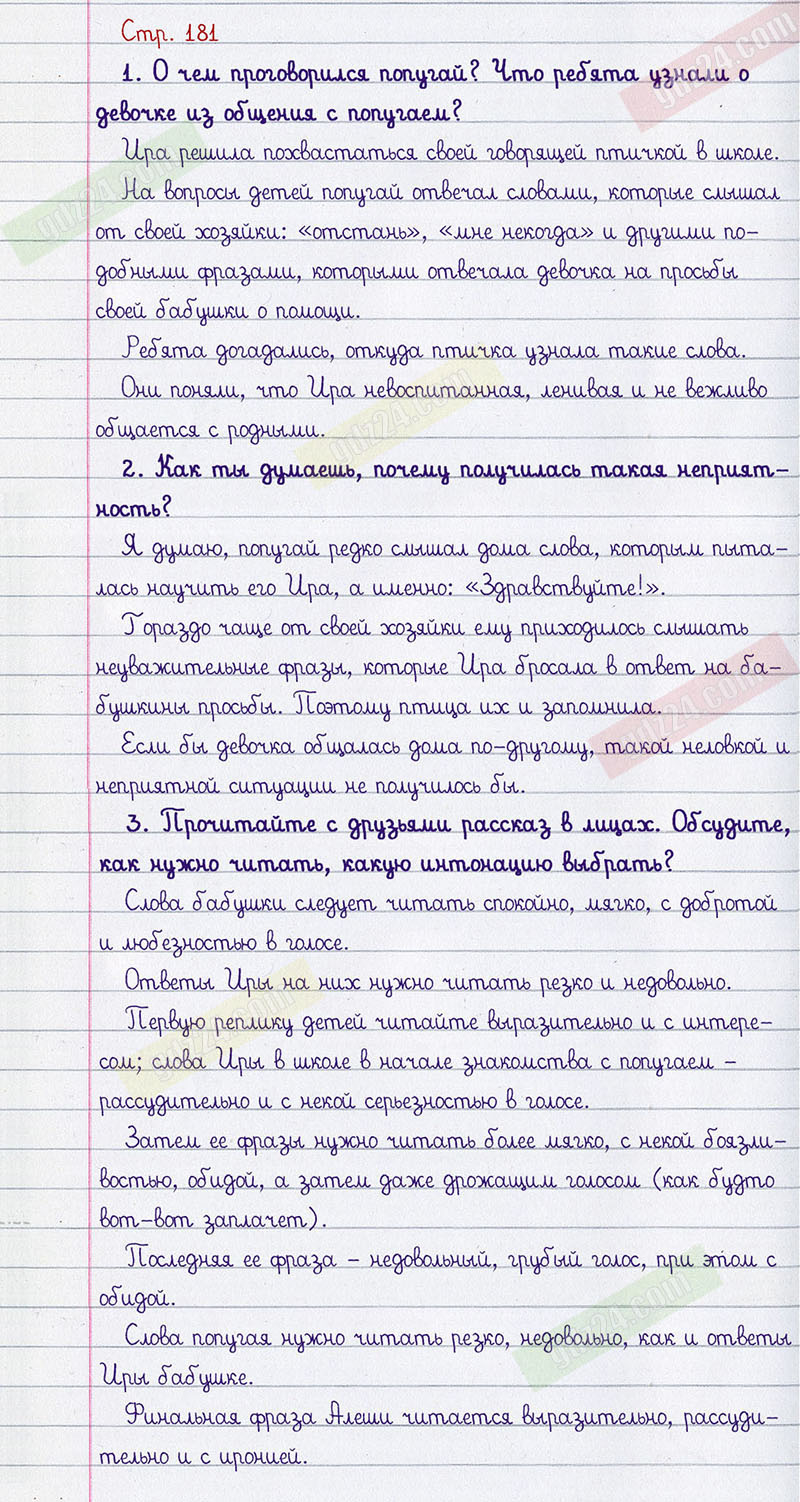 Стр. 181
1. О чем проговорился попугай? Что ребята узнали о
девочке из общения с попугаем?
Ира решила похвастаться своей говорящей птичкой в школе.
На вопросы детей попугай отвечал словами, которые слышал
от своей хозяйки: «отстань», «мне некогда» и другими по-
добными фразами, которыми отвечала девочка на просьбы
своей бабушки о помощи.
Ребята догадались, откуда птичка узнала такие слова.
Они поняли, что Ира невоспитанная, ленивая и не вежливо
общается с родными.
2. Как ты думаешь, почему получилась такая неприят-
ность?
Я думаю, попугай редко слышал дома слова, которым пыта-
лась научить его Ира, а именно: «Здравствуйте!».
Гораздо чаще от своей хозяйки ему приходилось слышать
неуважительные фразы, которые Ира бросала в ответ на ба-
бушкины просьбы. Поэтому птица их и запомнила.
Если бы девочка общалась дома по-другому, такой неловкой и
неприятной ситуации не получилось бы.
3. Прочитайте с друзьями рассказ в лицах. Обсудите,
как нужно читать, какую интонацию выбрать?
Слова бабушки следует читать спокойно, мягко, с добротой
и любезностью в голосе.
Ответы Иры на них нужно читать резко и недовольно.
Первую реплику детей читайте выразительно и с интере-
сом; слова Иры в школе в начале знакомства с попугаем –
рассудительно и с некой серьезностью в голосе.
Затем ее фразы нужно читать более мягко, с некой боязли-
востью, обидой, а затем даже дрожащим голосом (как будто
вот-вот заплачет).
Последняя ее фраза – недовольный, грубый голос, при этом с
обидой.
Слова попугая нужно читать резко, недовольно, как и ответы
Иры бабушке.
Финальная фраза Алеши читается выразительно, рассуди-
тельно и с иронией.
gdz24.com
gdz24.com
gdz24.com
gdz24.com
gdz24.com
gdz24.com